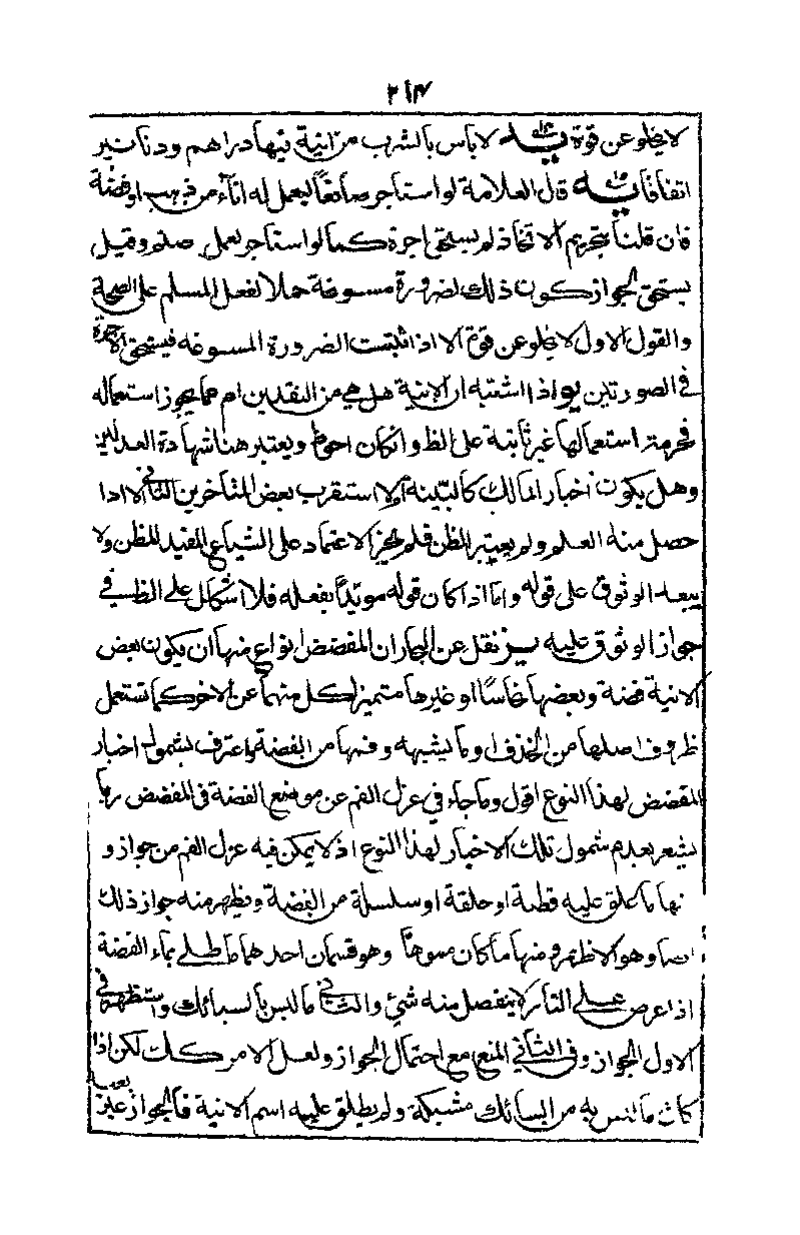 ٢١٤
لا يخلو عن قوة يد لا باس بالشرب من انية فيها دراهم ودنانير
اتفاقا يه قال العلامة لو استاجر صائغا ليعمل له اناء من ذهب او فضة
فان قلنا بتحريم الاتخاذ لم يستحق اجرة كما لو استاجر بعمل صنم وقيل
يستحق لجواز كون ذلك لضرورة مسوغة حملا لفعل المسلم على الصحة
والقول الاول لا يخلو عن قوة الا اذا ثبتت الضرورة المسوغه فيستحق الاجرة
في الصورتين يو اذا اشتبه ان الانية هل هي من النقدين ام مما يجوز استعماله
فحرمة استعمالها غير ثابتة على الظ وان كان احوط ويعتبر هنا شهادة العدلين
وهل يكون اخبار المالك كالبينة ام لا استقرب بعض المتاخرين الثاني الا اذا
حصل منه العلم ولم يعتبر الظن فلم يجز الاعتماد على الشياع المفيد للظن ولا
يبعد الوثوق على قوله واما اذا كان قوله مويدا بفعله فلا اشكال على الظ في
جواز الوثوق عليه يز نقل عن البحار ان المفضض انواع منها ان يكون بعض
الانية فضة وبعضها نحاسا او غيرها متميز كل منهما عن الاخر كما تستعمل
ظروف اصلها من الخذف او ما يشبهه وفمها من الفضة واعترف بشمول اخبار
المفضض لهذا النوع اقول وما جاء في عزل الفم عن موضع الفضة في المفضض ربما
يشعر بعدم شمول تلك الاخبار لهذا النوع اذ لا يمكن فيه عزل الفم من جواز و
نها ما علق عليه قطعة او حلقة او سلسلة من الفضة ويظهر منه جواز ذلك
ايضا وهو الاظهر ومنها ما كان مموها وهو قسمان احدهما ما طلي بماء الفضة
اذا عرض على النار لا ينفصل منه شئ والثاني ما لبس بالسبائك واستظهر في
الاول الجواز وفي الثاني المنع مع احتمال الجواز ولعل الامر كك لكن اذا
كان ما لبس به من السبائك مشبكة ولم يطلق عليه اسم الانية فالجواز غير بعيد